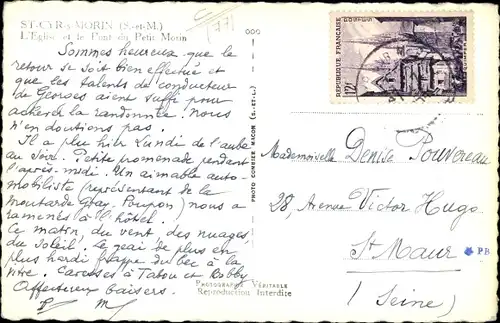 ST-CYR-s-MORIN (S.-et-M.)
L'Eglise et le Pont du Petit Morin
77
Sommes heureux que le
retour se soit bien effectué et
que les talents de conducteur
de Georges aient suffi pour
achever la randonnée, nous
n'en doutions pas.
Il a plu hier Lundi de l'aube
au soir. Petite promenade pendant
l'après-midi. Un aimable auto-
mobiliste (représentant de la
moutarde Gray-Poupon) nous a
ramenés à l'hôtel.
Ce matin, du vent, des nuages,
du soleil. Le geai de plus en
plus hardi frappe du bec à la
vitre. Caresses à Tatou et Robby
Affectueux baisers.
PHOTO COMBIER MACON (S.-ET-L.)
PHOTOGRAPHIE VÉRITABLE
Reproduction Interdite
RÉPUBLIQUE FRANÇAISE
POSTES
12F
Mademoiselle Denise Pouvereau
28, Avenue Victor Hugo
St Maur
(Seine)
PB